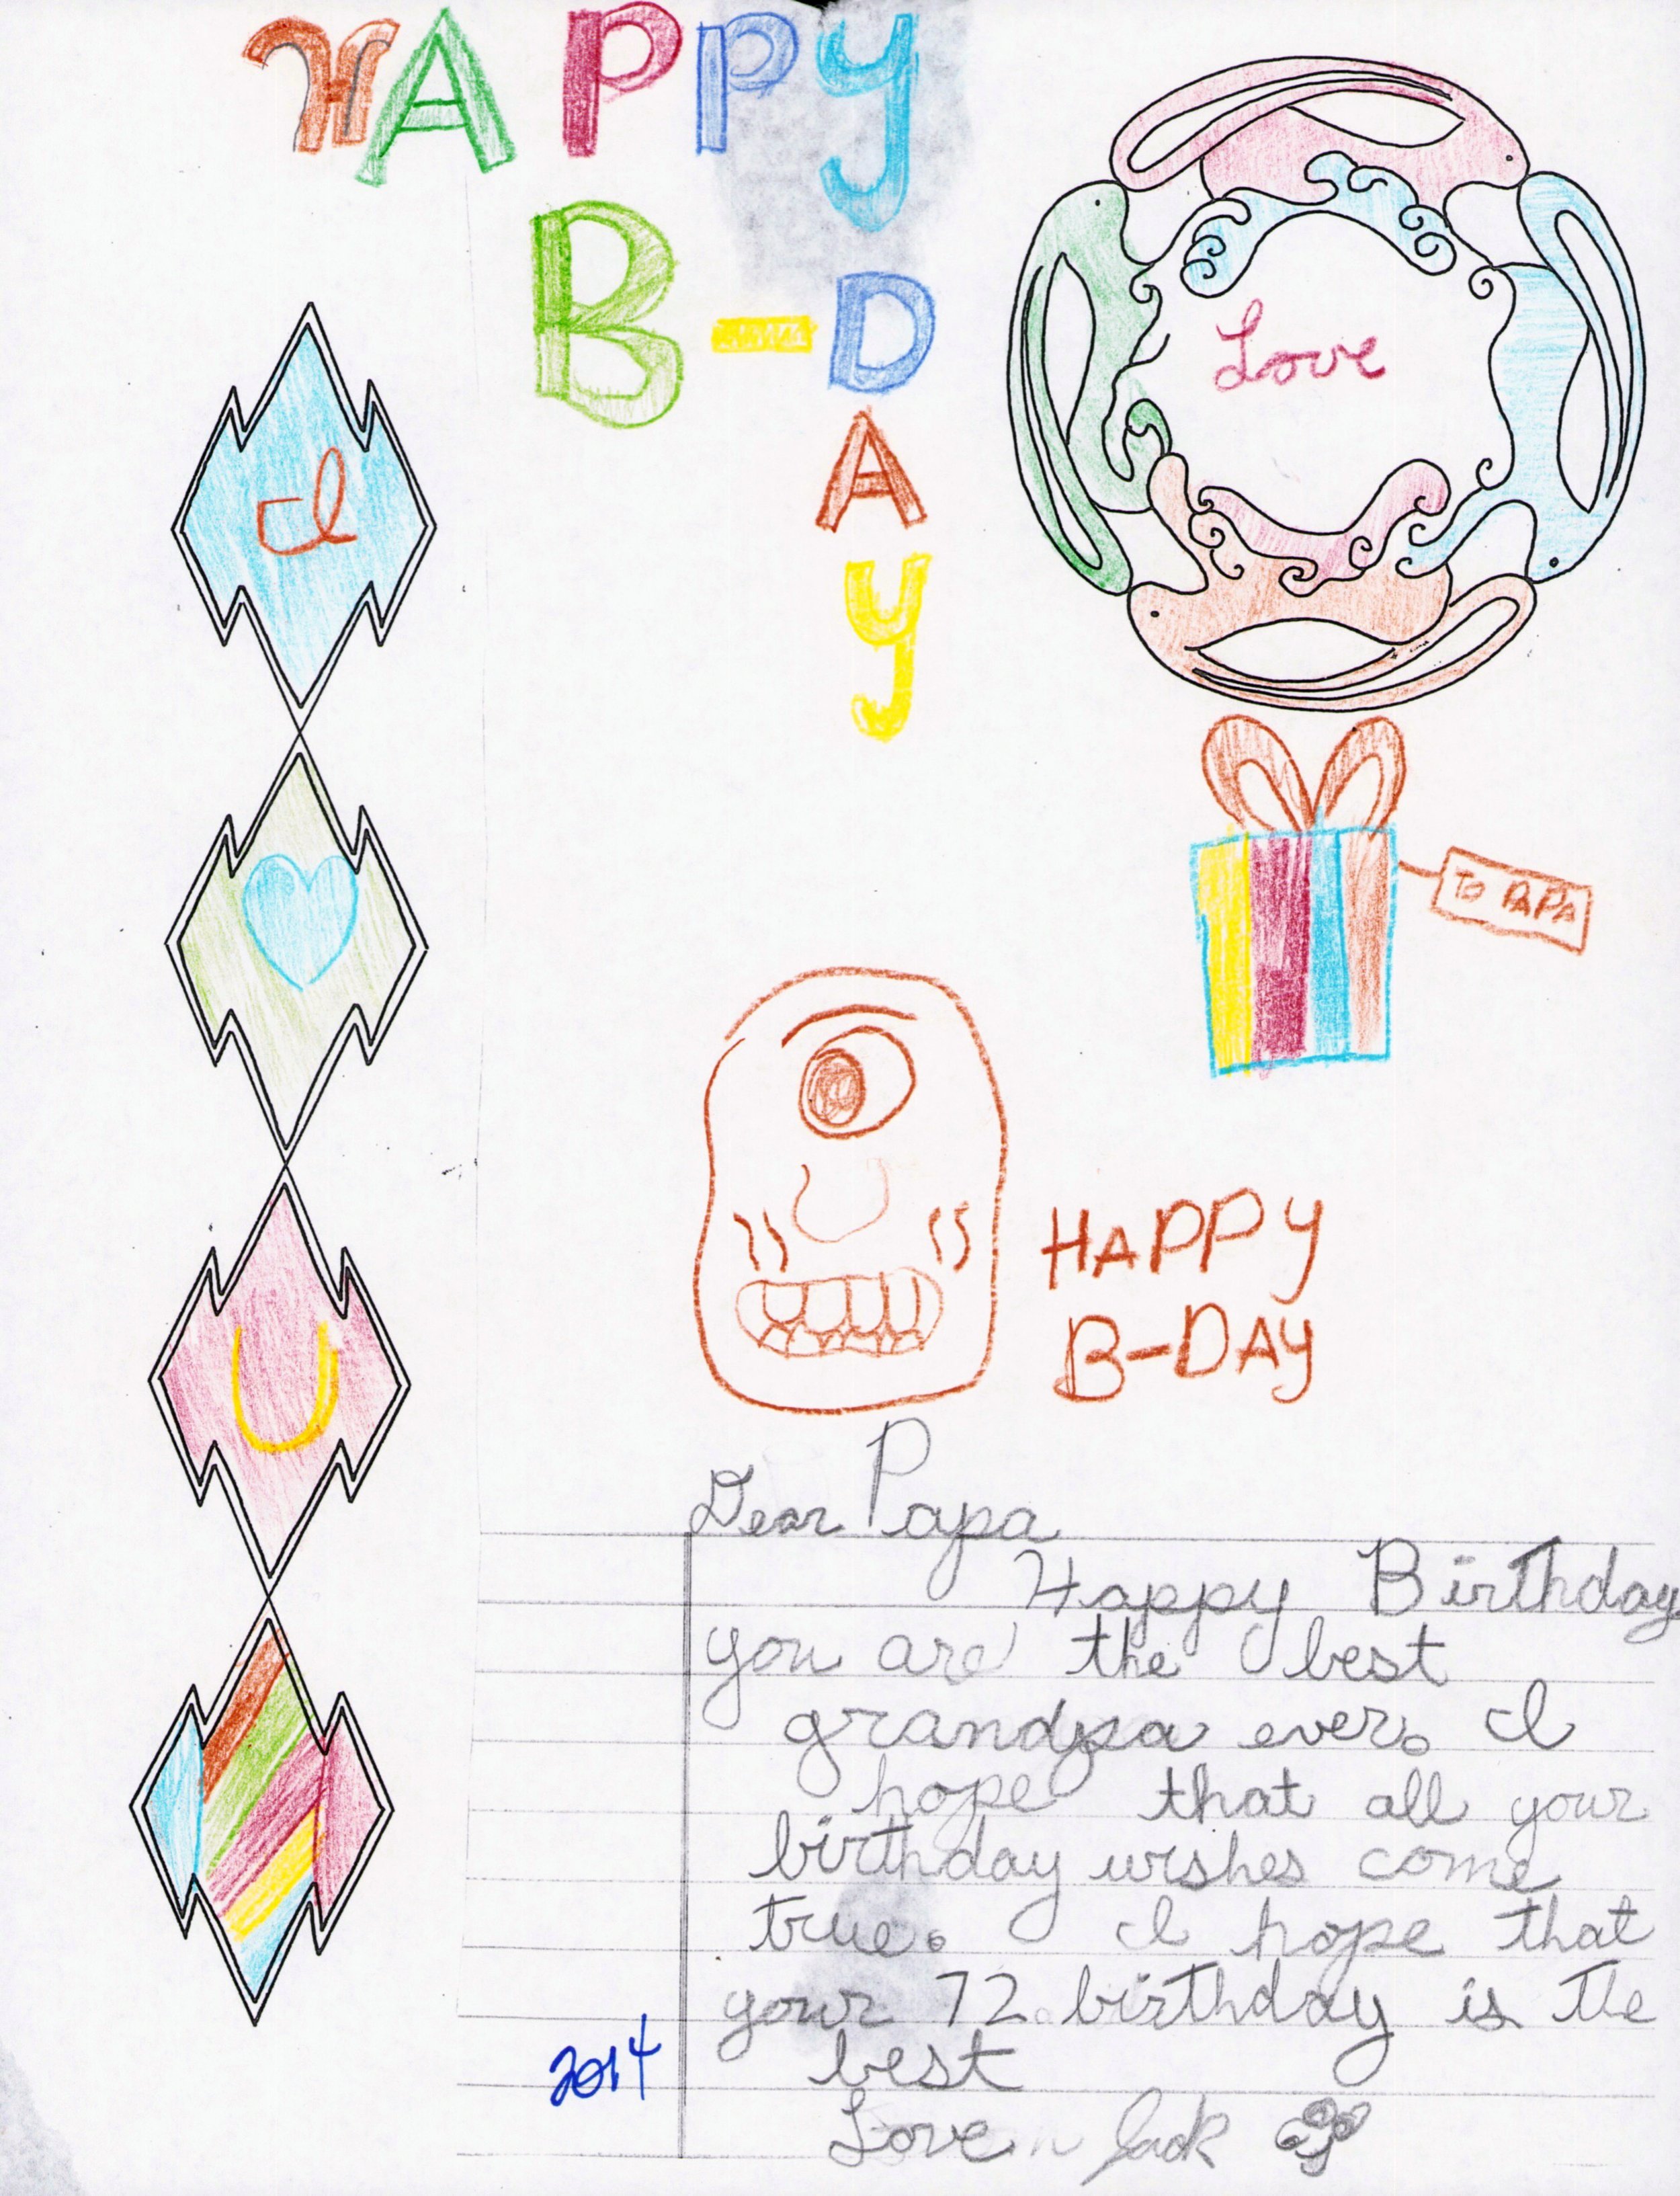 HAPPY
B-DAY
Love
I
U
To PAPA
HAPPY
B-DAY
Dear Papa
Happy Birthday
you are the best
grandpa ever. I
hope that all your
birthday wishes come
true. I hope that
your 72 birthday is the
best
2014
Love Jack